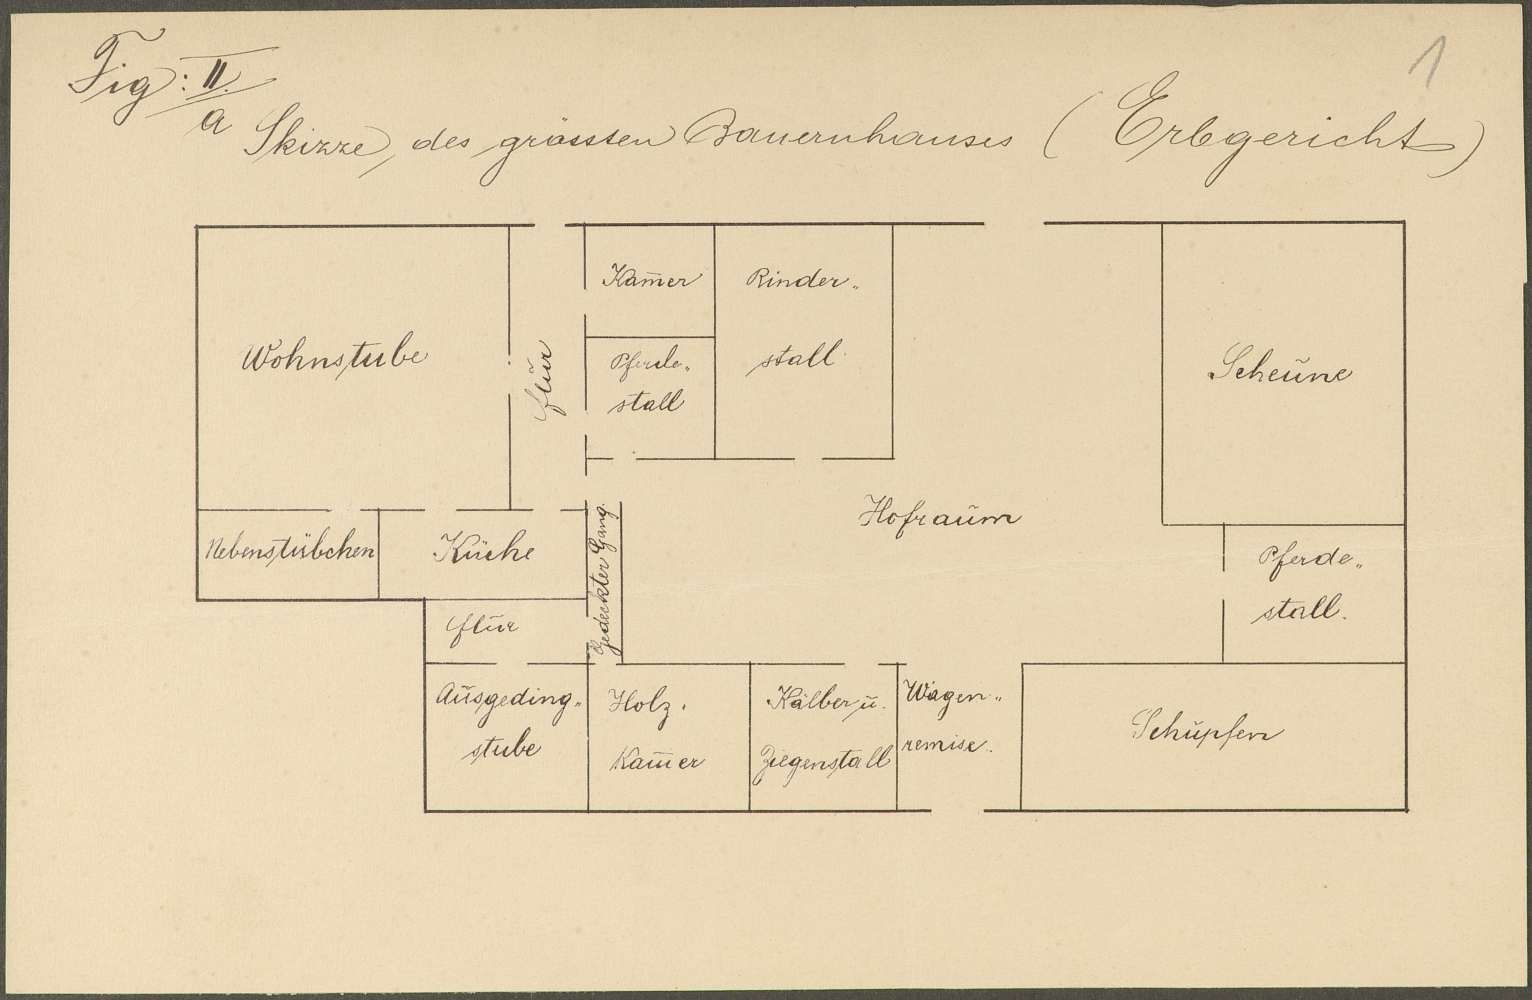 1
Fig: II.
a
Skizze, des grössten Bauernhauses (Erbgericht)
Kam̄er
Rinder„
stall
Wohnstube
flŭr
Pferde„
stall
Scheŭne
Hofraŭm
Nebenstübchen
Küche
Gedeckter Gang
Pferde„
stall.
flŭr
Aŭsgeding„
stube
Holz.
Kam̄er
Kälber, ŭ.
Ziegenstall
Wagen„
remise.
Schŭpfen